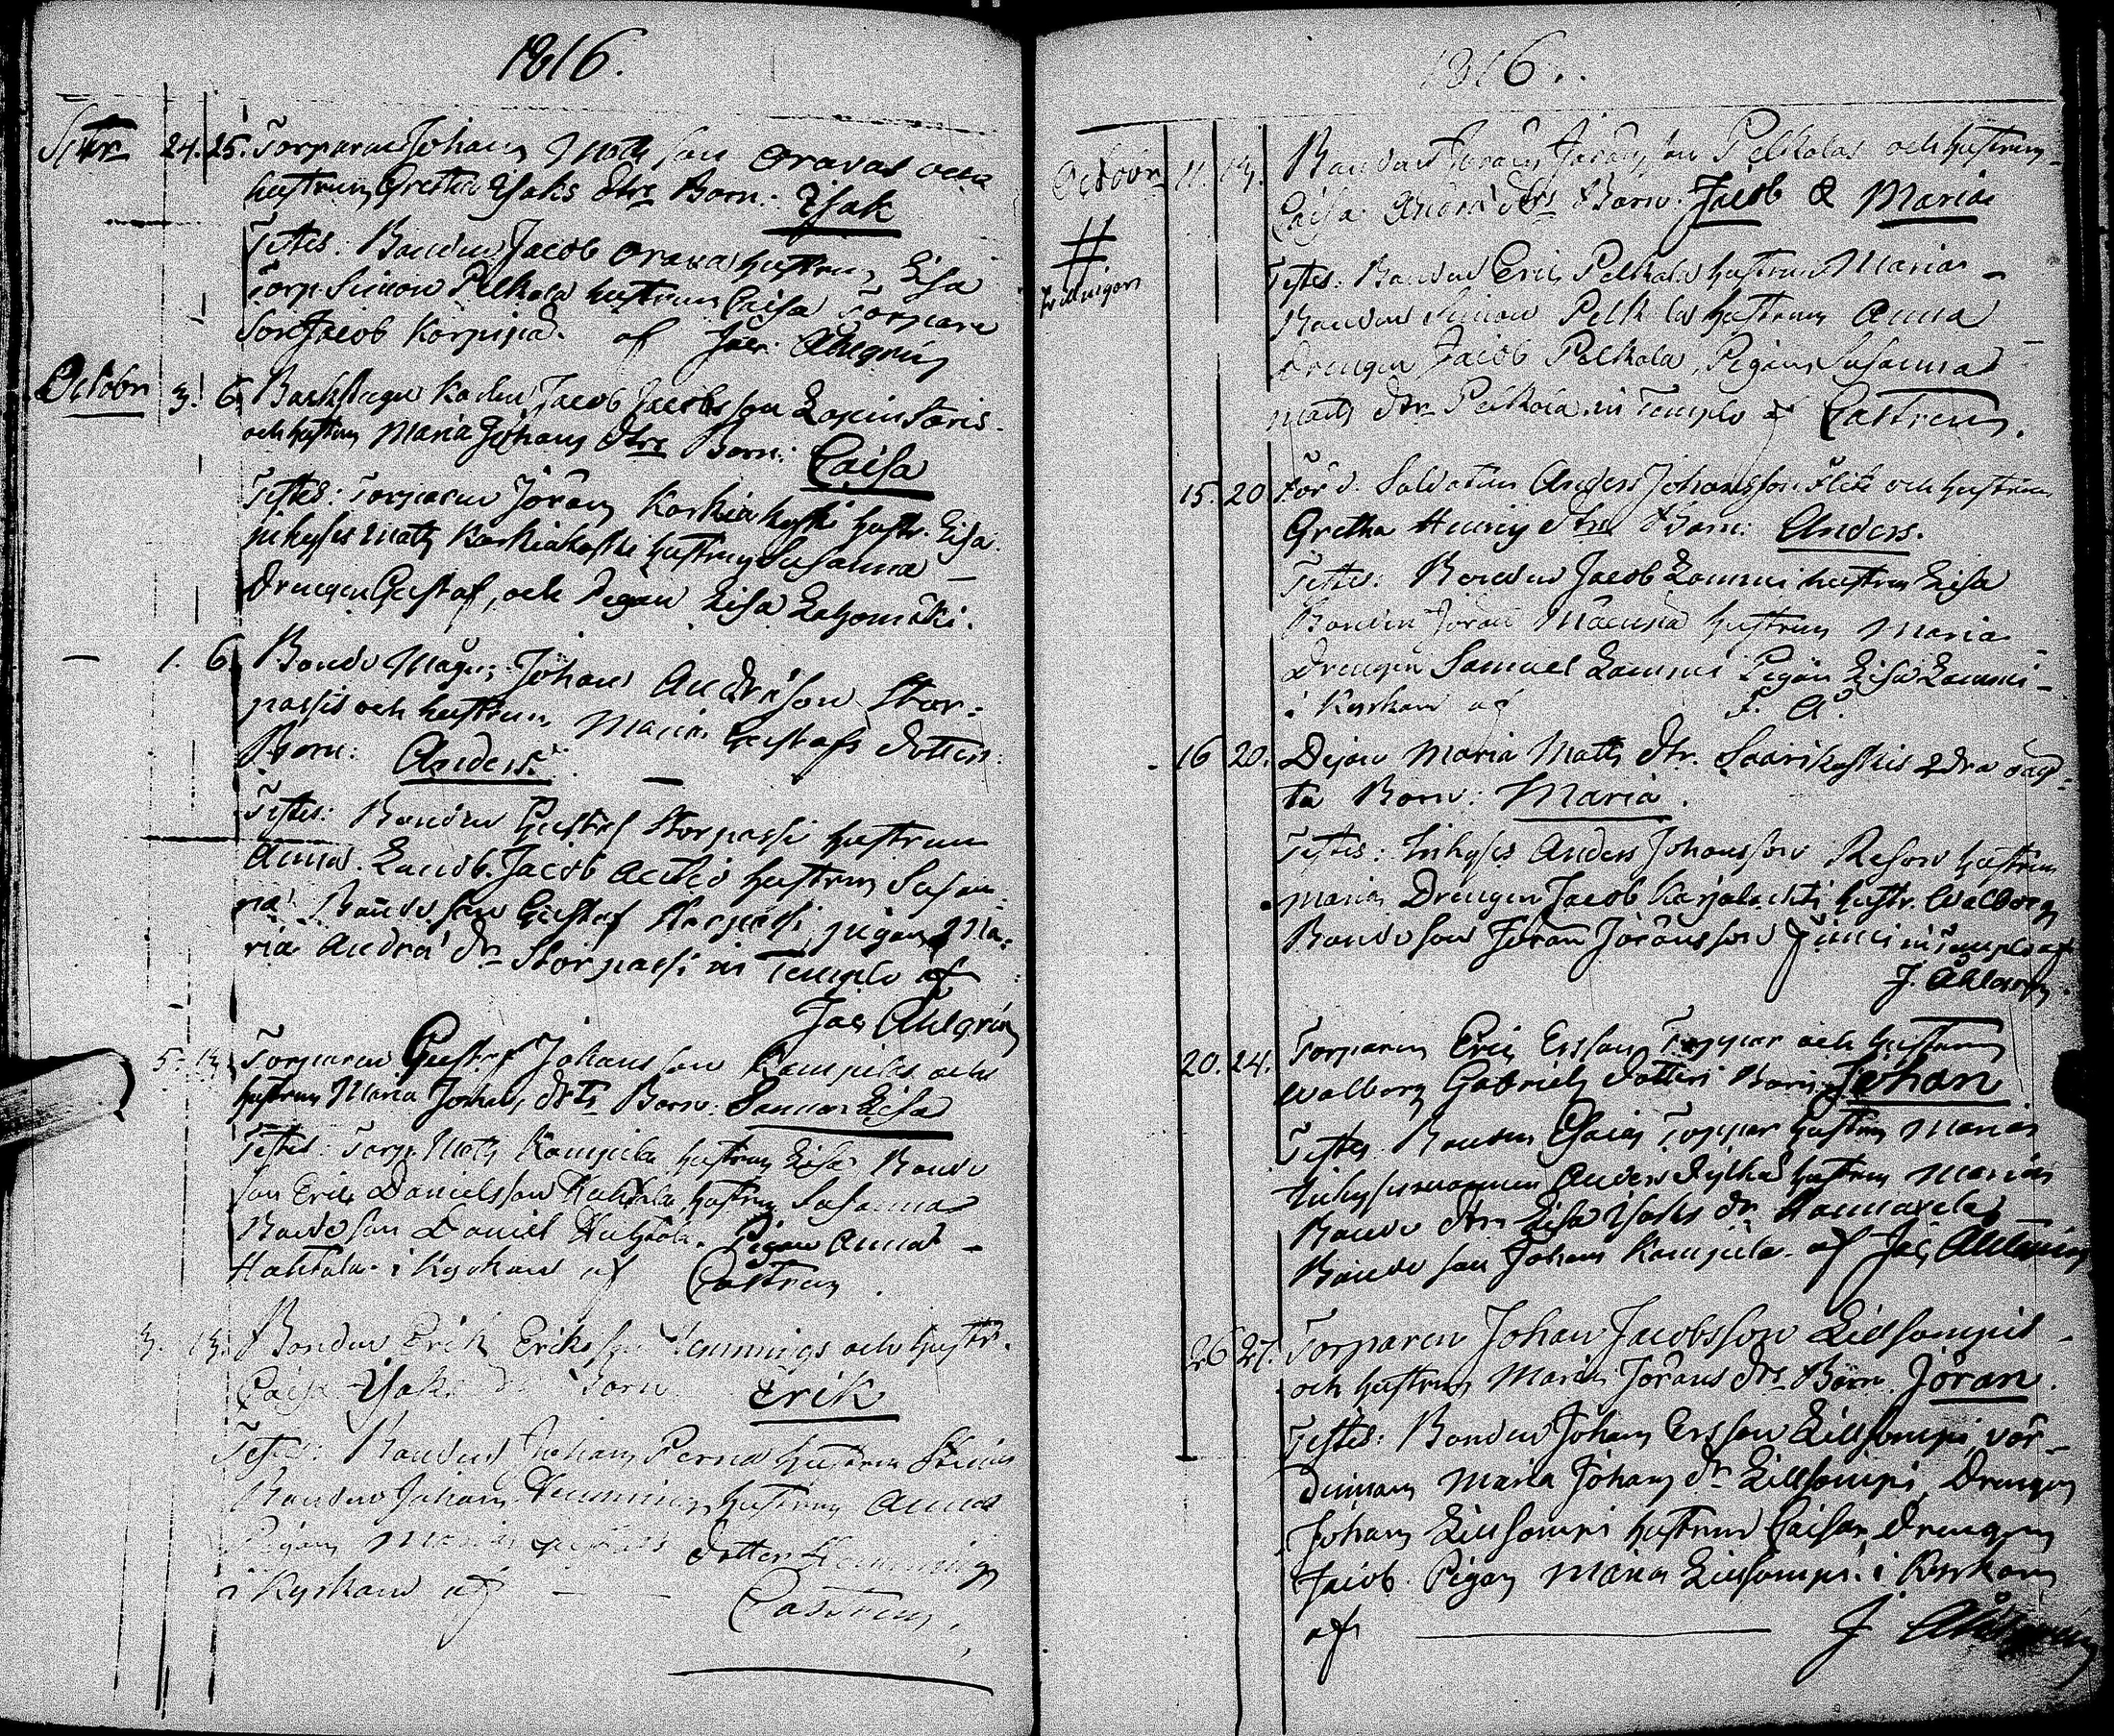 1816.
Septbr 24. 25. Torparen Johan Matts son Oravas och
hustrun Greta Isaks dtrs Barn: Isak
Testes: Bonden Jacob Orava hustrun Lisa
Torp. Simon Pelkola hustrun Caisa Torpare
Son Jacob Korpijä. af Jac: Ahlgrén
Octobr 3. 6. Backstugu Karlen Jacob Jacobsson
och hustrun Maria Johans dtrs Barn: Caisa
Testes: Torparen Jöran Koskiakoski hustr. Lisa.
inhyses Matts Koskiakoski hustrun Susanna
Drengen Gustaf, och Pigan Lisa
— 1. 6. Bonde Mågen Johan Andrésson Stor-
passis och hustrun Maria Gustafs dotters
Barn: Anders. —
Testes: Bonden Gustaf Storpassi hustrun
Anna. Landb. Jacob hustrun Susan-
na Bonde son Gustaf Storpassi, pigan Ma-
ria André dr Storpassi in Templo af
Jac Ahlgrén
5. 13. Torparen Gustaf Johansson Kampilas och
hustrun Maria Johans dtrs Barn: Sanna Lisa
Testes: Torp. Matts Kampila hustrun Lisa Bonde
son Eric Danielsson Huhtala hustrun Susanna
Bonde son Daniel Huhtala. Pigan Anna
Huhtala. i Kyrkan af Castren
3. 13. Bonden Erik Eriksson Hemmings och hustr.
Caisa Isaks dr Barn Erik
Testes: Bonden Johan Perna hustrun Stina
Bonden Johan Hemming hustrun Anna
Pigan Maria dotter Hemming
i Kyrkan af — — Castren
1816.
Octobr 11. 13. Bonden Jöran Jöransson Pelkolas och hustrun
Caisa André dtrs Barn: Jacob & Maria
# Testes: Bonden Eric Pelkola hustrun Maria
Tvillingar Bonden Simon Pelkola hustrun Anna
Drengen Jacob Pelkola, Pigan Susanna
Matts dtr Pelkola in Templo af Castren.
15. 20. För d. Soldaten Anders Johansson Flik och hustrun
Gretha Henrics dtrs Barn: Anders.
Testes: Bonden Jacob Lammi hustrun Lisa
Bonden Jöran Mäenpä hustrun Maria
Drengen Samuel Lammi Pigan Lisa Lammi
i Kyrkan af J. A.
16 20. Pigan Maria Matts dtr. Saarikoskis 2dra oäg-
ta Barn: Maria.
Testes: Inhyses Anders Johansson hustrun
Maria, Drengen Jacob Karjalachti hustr. Walborg
Bonde son Jöran Jöransson in Templo af
J. Ahlgrén.
20. 24. Torparen Eric Ersson Toppar och hustrun
Walborg Gabriels dotters Barn: Johan
Testes Bonden Esaias Toppar hustrun Maria
Inhysesmannen Anders hustrun Maria
Bonde dtr Lisa Isaks dr
Bonde son Johan Kampila af Jac Ahlgrén
26 27. Torparen Johan Jacobsson Lillsompis
och hustrun Maria Jörans dtrs Barn: Jöran.
Testes: Bonden Johan Ersson Lillsompi vär-
dinnan Maria Johans dr Lillsompi, Drengen
Johan Lillsompi hustrun Caisa, Drengen
Jacob. Pigan Maria Lillsompi. i Kyrkan
af — J Ahlgrén